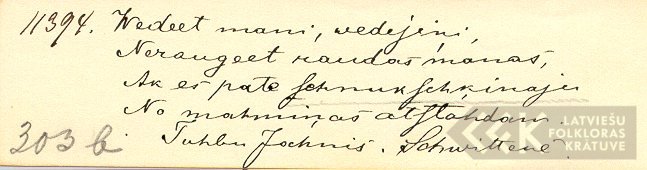 11394. Wedeet mani, wedejini,
Neraugeet raudas manas,
Ak es pate schnukschķinaju
No mahmiņas atstahdam.
303 b. Tuhbu Jochnis. Schwittenē.
LATVIEŠU
FOLKLORAS
KRĀTUVE